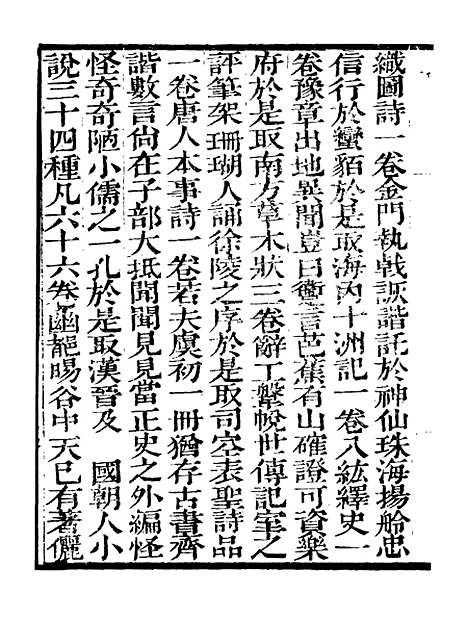 織圖詩一卷金門執戟詼諧託於神仙珠海揚舲忠
信行於蠻貊於是取海內十洲記一卷八紘繹史一
卷豫章出地異聞豈曰衞言芭蕉有山確證可資樂
府於是取南方草木狀三卷辭工鞶帨世傳記室之
評筆架珊瑚人誦徐陵之序於是取司空表聖詩品
一卷唐人本事詩一卷若夫虞初一冊猶存古書齊
諧數言尙在子部大抵聞聞見見當正史之外編怪
怪奇奇陋小儒之一孔於是取漢晉及 國朝人小
說三十四種凡六十六卷幽龍賜谷中天已有著儷